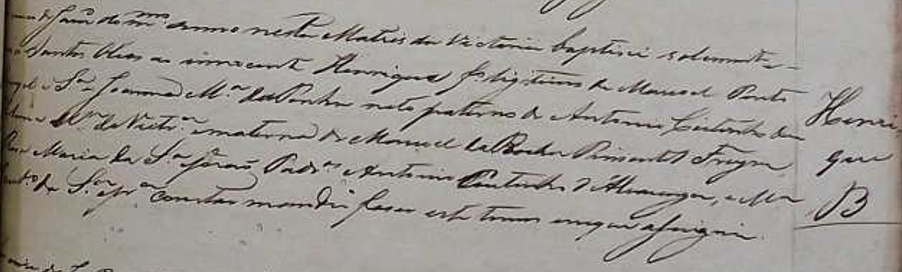 de Janº do mmo anno nesta Matris da Victoria baptisei solemnte
Santos Oleos ao innocente Henrique fº legitimo de Manoel Pinto
Sª Joanna Mª da Penha neto paterno de Antonio Coutinho
da Victª e materno de Manoel da Rocha Pimentel
Maria da Sª forão Padrs Antonio Coutinho d'Alvarenga, e
da Sª e pª constar mandei faser este termo em que assignei.
Henri
que
B